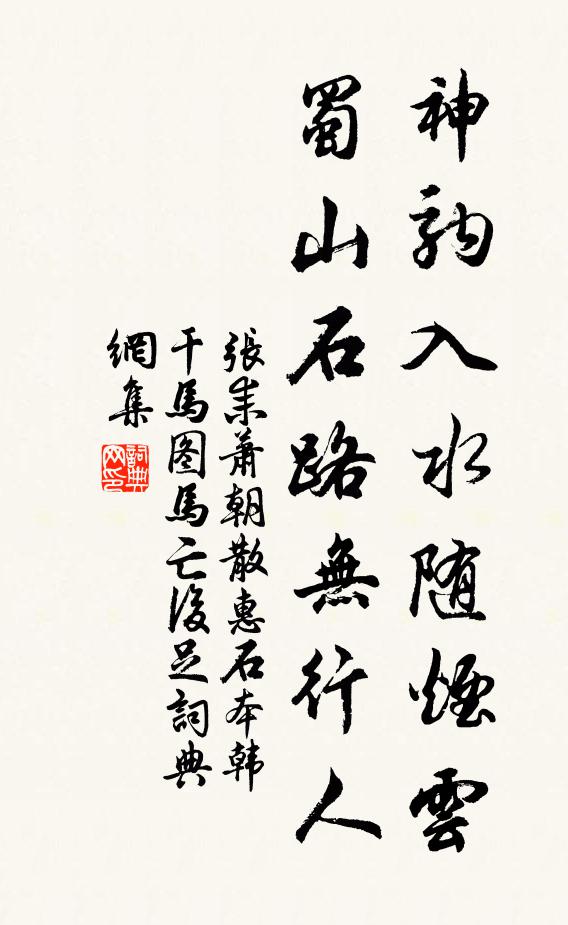 神駒入水随煙雲
蜀山石路無行人
張耒蕭朝散惠石本韩
干馬图馬亡後足詞典
網集
詞典网印